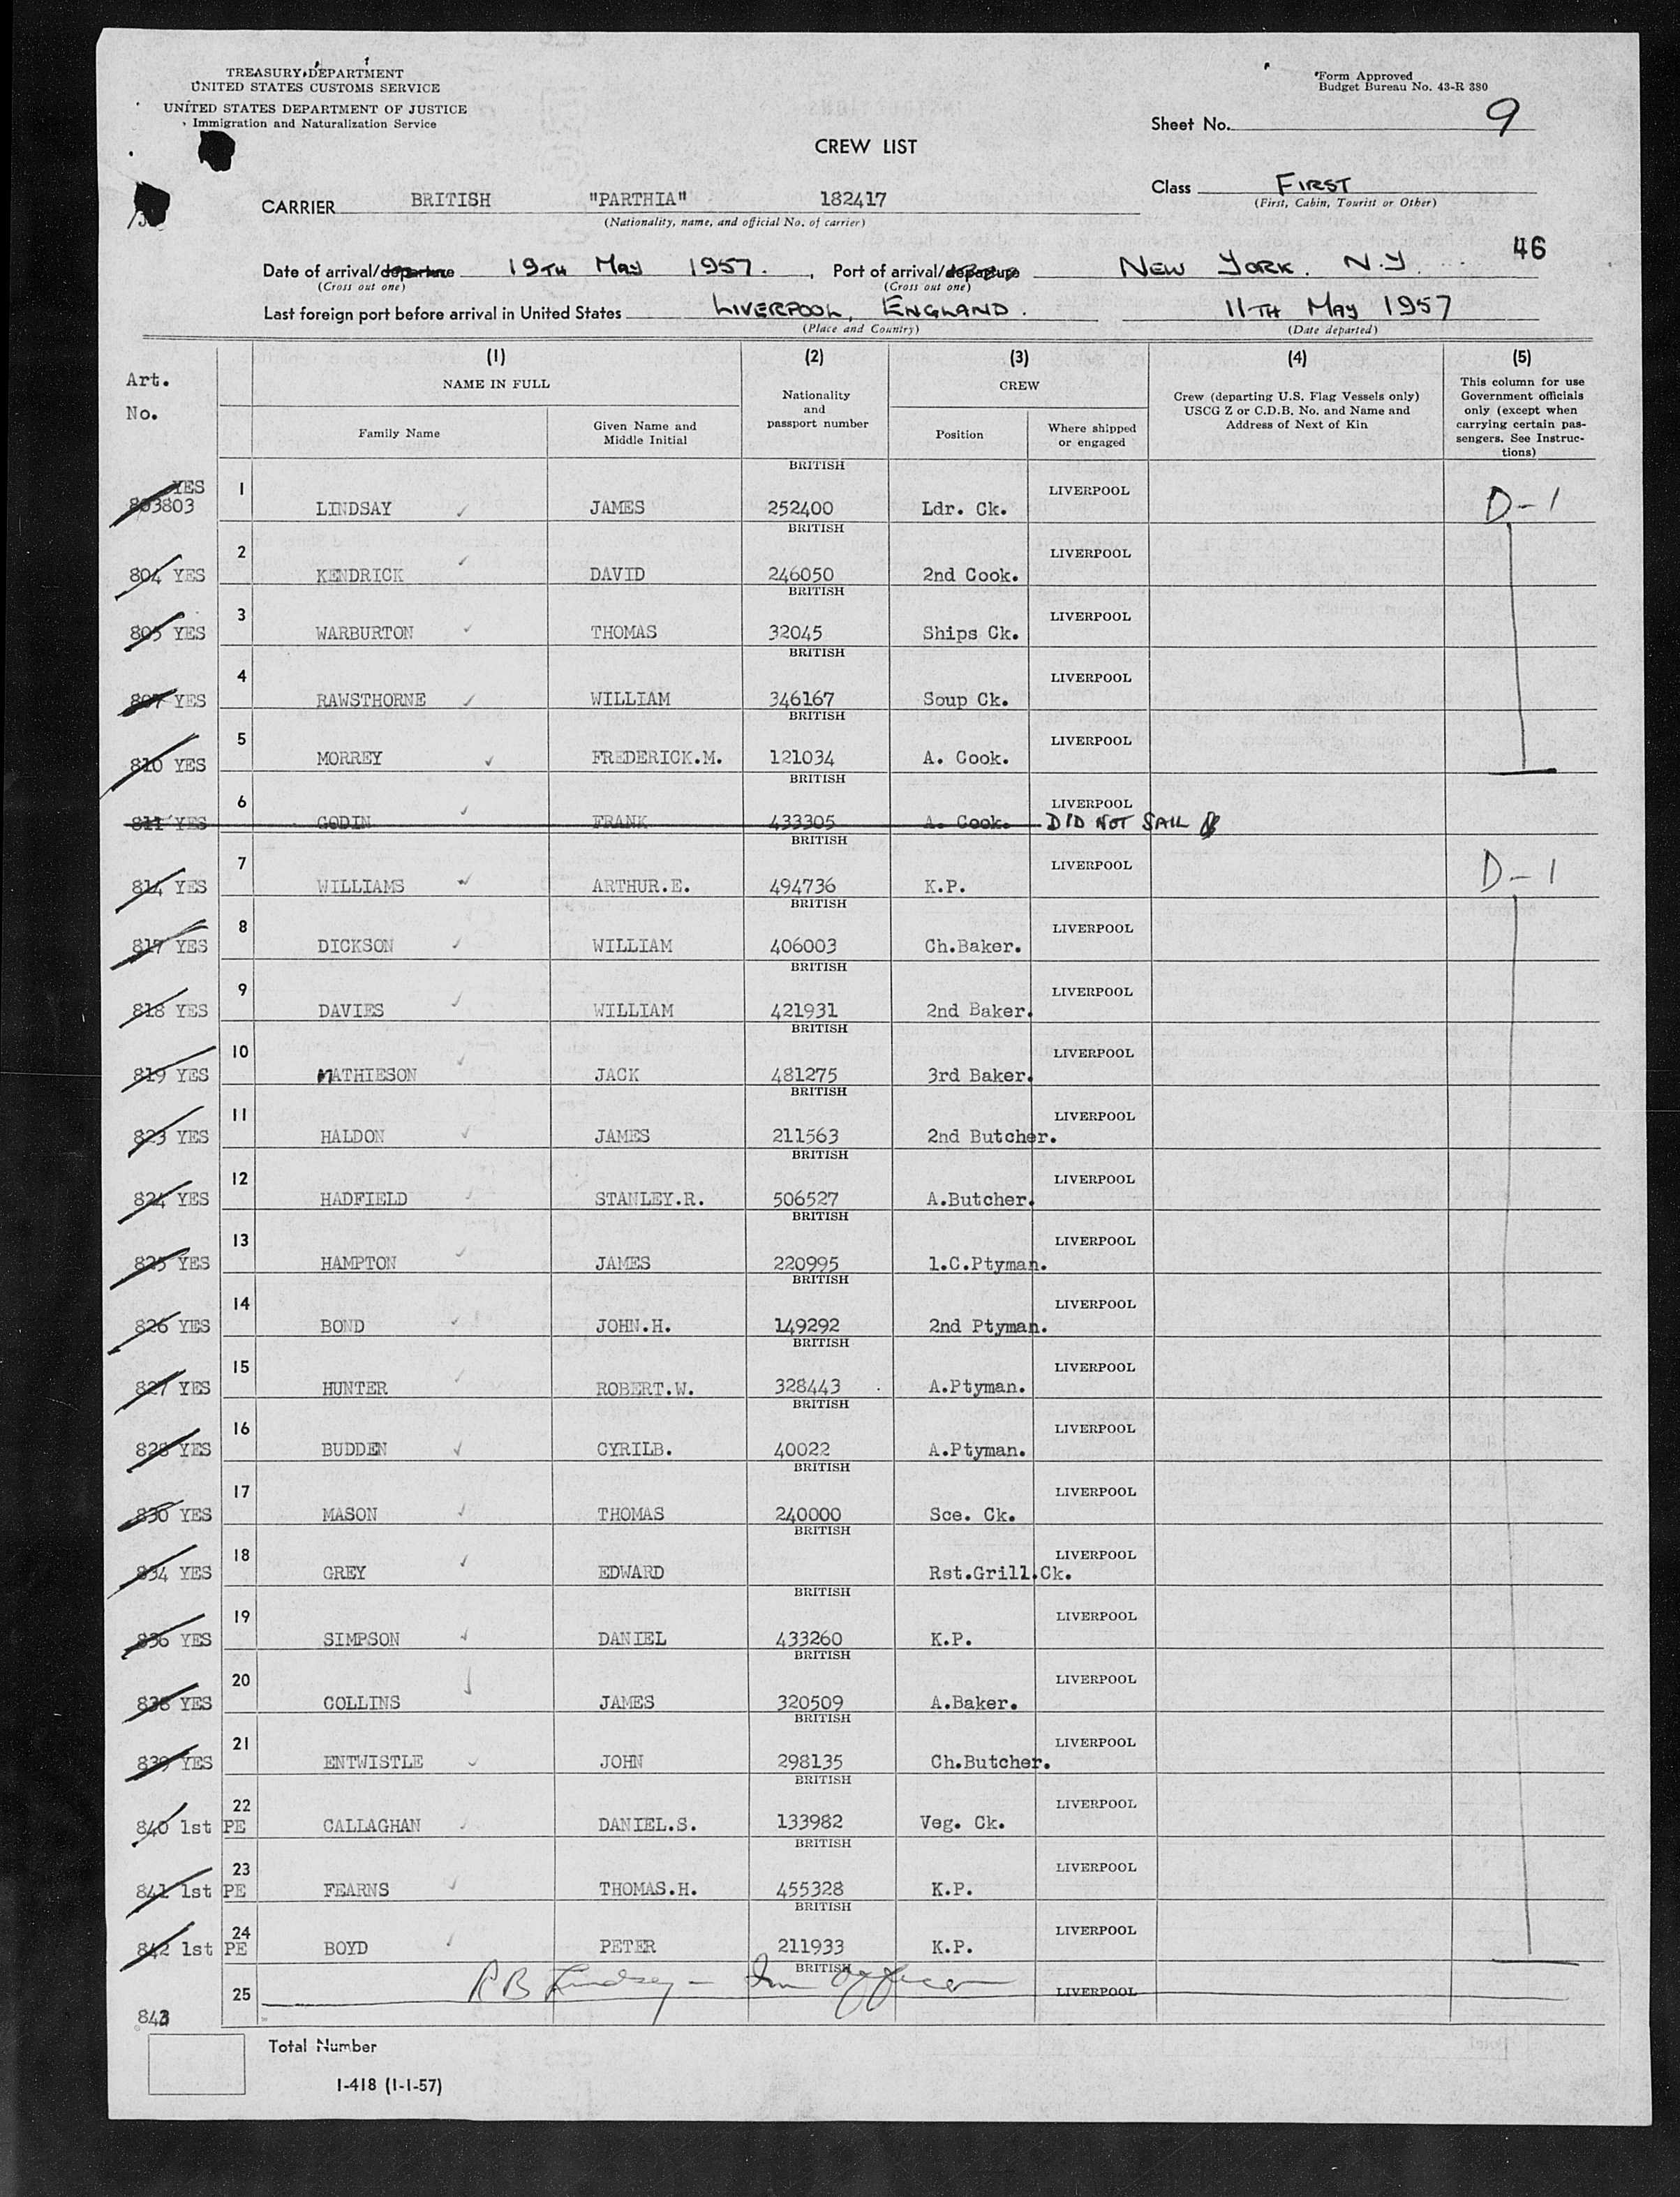 TREASURY DEPARTMENT
UNITED STATES CUSTOMS SERVICE
UNITED STATES DEPARTMENT OF JUSTICE
Immigration and Naturalization Service
Form Approved
Budget Bureau No. 43-R 380
Sheet No. 9
CREW LIST
Class FIRST
(First, Cabin, Tourist or Other)
CARRIER BRITISH "PARTHIA" 182417
(Nationality, name, and official No. of carrier)
46
Date of arrival/departure 19TH MAY 1957. , Port of arrival/departure NEW YORK. N.Y.
(Cross out one) (Cross out one)
Last foreign port before arrival in United States LIVERPOOL, ENGLAND. 11TH MAY 1957
(Place and Country) (Date departed)
Art. No.
(1) (2) (3) (4) (5)
NAME IN FULL
Family Name
Given Name and Middle Initial
Nationality and passport number
CREW
Position
Where shipped or engaged
Crew (departing U.S. Flag Vessels only) USCG Z or C.D.B. No. and Name and Address of Next of Kin
This column for use Government officials only (except when carrying certain passengers. See Instructions)
YES 803803 1 LINDSAY JAMES BRITISH 252400 Ldr. Ck. LIVERPOOL D-1
804 YES 2 KENDRICK DAVID BRITISH 246050 2nd Cook. LIVERPOOL
805 YES 3 WARBURTON THOMAS BRITISH 32045 Ships Ck. LIVERPOOL
807 YES 4 RAWSTHORNE WILLIAM BRITISH 346167 Soup Ck. LIVERPOOL
810 YES 5 MORREY FREDERICK.M. BRITISH 121034 A. Cook. LIVERPOOL
811 YES 6 GODIN FRANK BRITISH 433305 A. Cook. LIVERPOOL DID NOT SAIL
814 YES 7 WILLIAMS ARTHUR.E. BRITISH 494736 K.P. LIVERPOOL D-1
817 YES 8 DICKSON WILLIAM BRITISH 406003 Ch.Baker. LIVERPOOL
818 YES 9 DAVIES WILLIAM BRITISH 421931 2nd Baker. LIVERPOOL
819 YES 10 MATHIESON JACK BRITISH 481275 3rd Baker. LIVERPOOL
823 YES 11 HALDON JAMES BRITISH 211563 2nd Butcher. LIVERPOOL
824 YES 12 HADFIELD STANLEY.R. BRITISH 506527 A.Butcher. LIVERPOOL
825 YES 13 HAMPTON JAMES BRITISH 220995 1.C.Ptyman. LIVERPOOL
826 YES 14 BOND JOHN.H. BRITISH 149292 2nd Ptyman. LIVERPOOL
827 YES 15 HUNTER ROBERT.W. BRITISH 328443 A.Ptyman. LIVERPOOL
828 YES 16 BUDDEN CYRILB. BRITISH 40022 A.Ptyman. LIVERPOOL
830 YES 17 MASON THOMAS BRITISH 240000 Sce. Ck. LIVERPOOL
834 YES 18 GREY EDWARD BRITISH Rst.Grill.Ck. LIVERPOOL
836 YES 19 SIMPSON DANIEL BRITISH 433260 K.P. LIVERPOOL
838 YES 20 COLLINS JAMES BRITISH 320509 A.Baker. LIVERPOOL
839 YES 21 ENTWISTLE JOHN BRITISH 298135 Ch.Butcher. LIVERPOOL
840 1st PE 22 CALLAGHAN DANIEL.S. BRITISH 133982 Veg. Ck. LIVERPOOL
841 1st PE 23 FEARNS THOMAS.H. BRITISH 455328 K.P. LIVERPOOL
842 1st PE 24 BOYD PETER BRITISH 211933 K.P. LIVERPOOL
843 25 R B Lindsey - Imm Officer BRITISH LIVERPOOL
Total Number
I-418 (1-1-57)